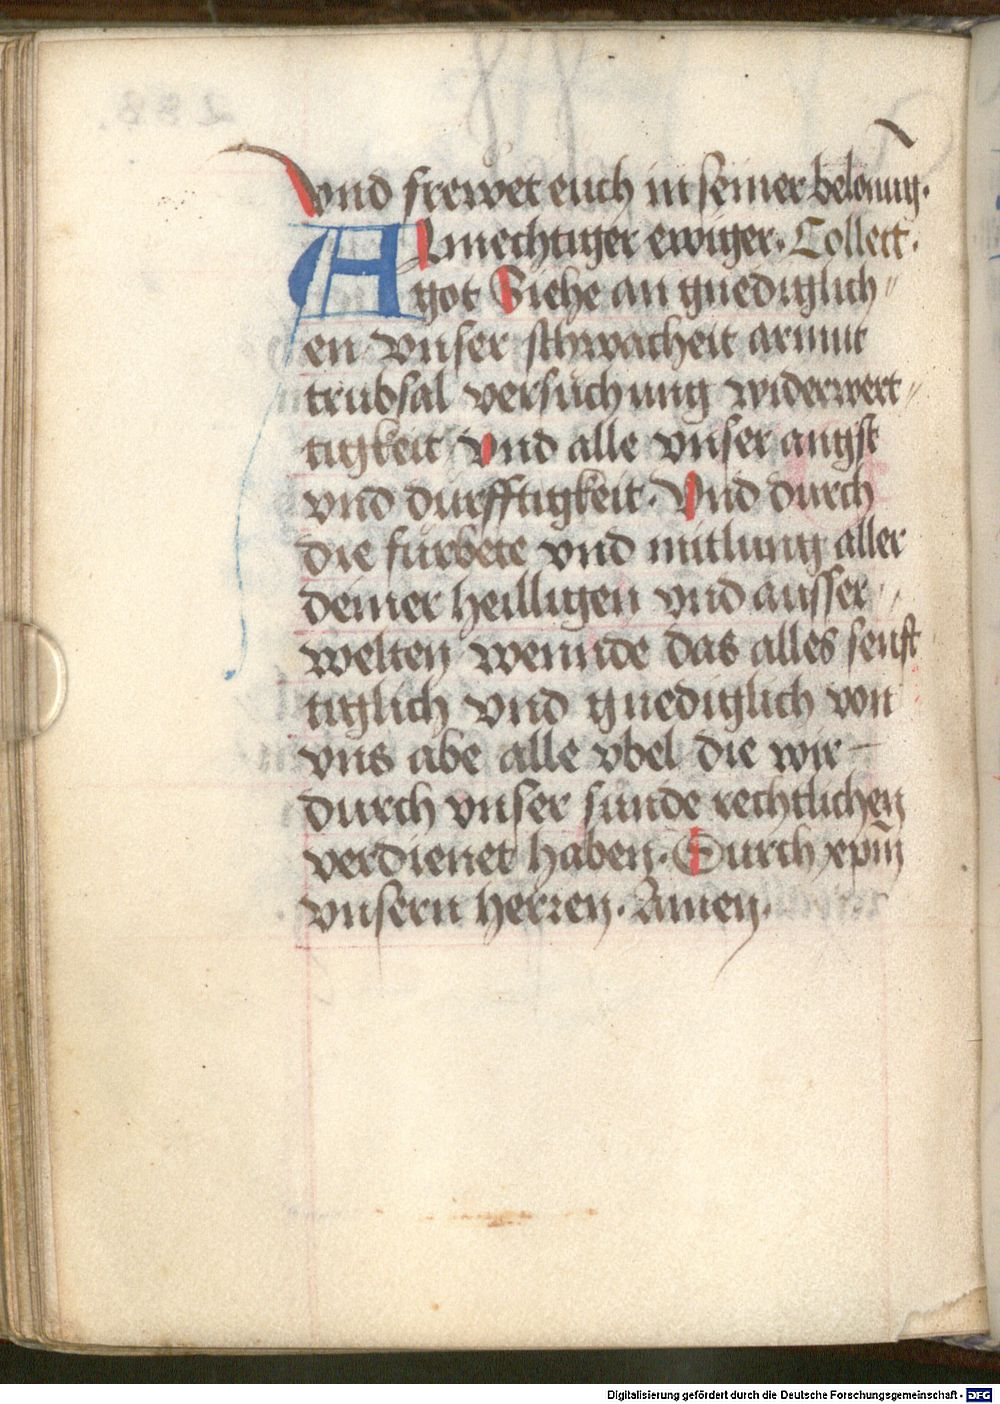 Vnd frewet euch in seiner belonung.
Almechtiger ewiger. Collect.
got Siehe an gnediglich=
en vnser schwacheit armut
trubsal versuchung widerwert=
tigkeit Vnd alle vnser angst
vnd durfftigkeit. Vnd durch
die furbete vnd mitlung aller
deiner heilligen vnd ausser=
welten wennde das alles senft
tiglich vnd gnediglich von
vns abe alle vbel die wir
durch vnser sunde rechtlichen
verdienet haben. Durch xpm̄
vnsern herren. Amen.
Digitalisierung gefördert durch die Deutsche Forschungsgemeinschaft - DFG